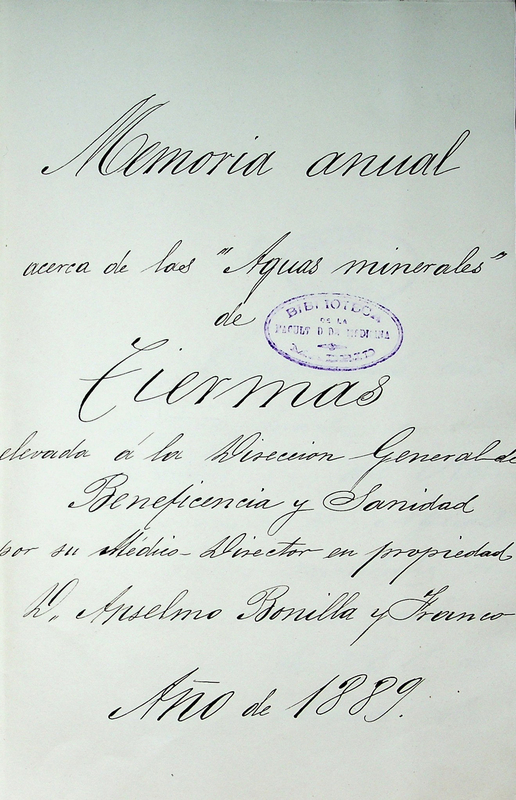 Memoria anual
acerca de las "Aguas minerales"
de
BIBLIOTECA
DE LA
FACULTAD DE MEDICINA
MADRID
Tiermas
elevada á la Direccion General de
Beneficencia y Sanidad
por su Médico-Director en propiedad
D. Anselmo Bonilla y Franco
Año de 1889.